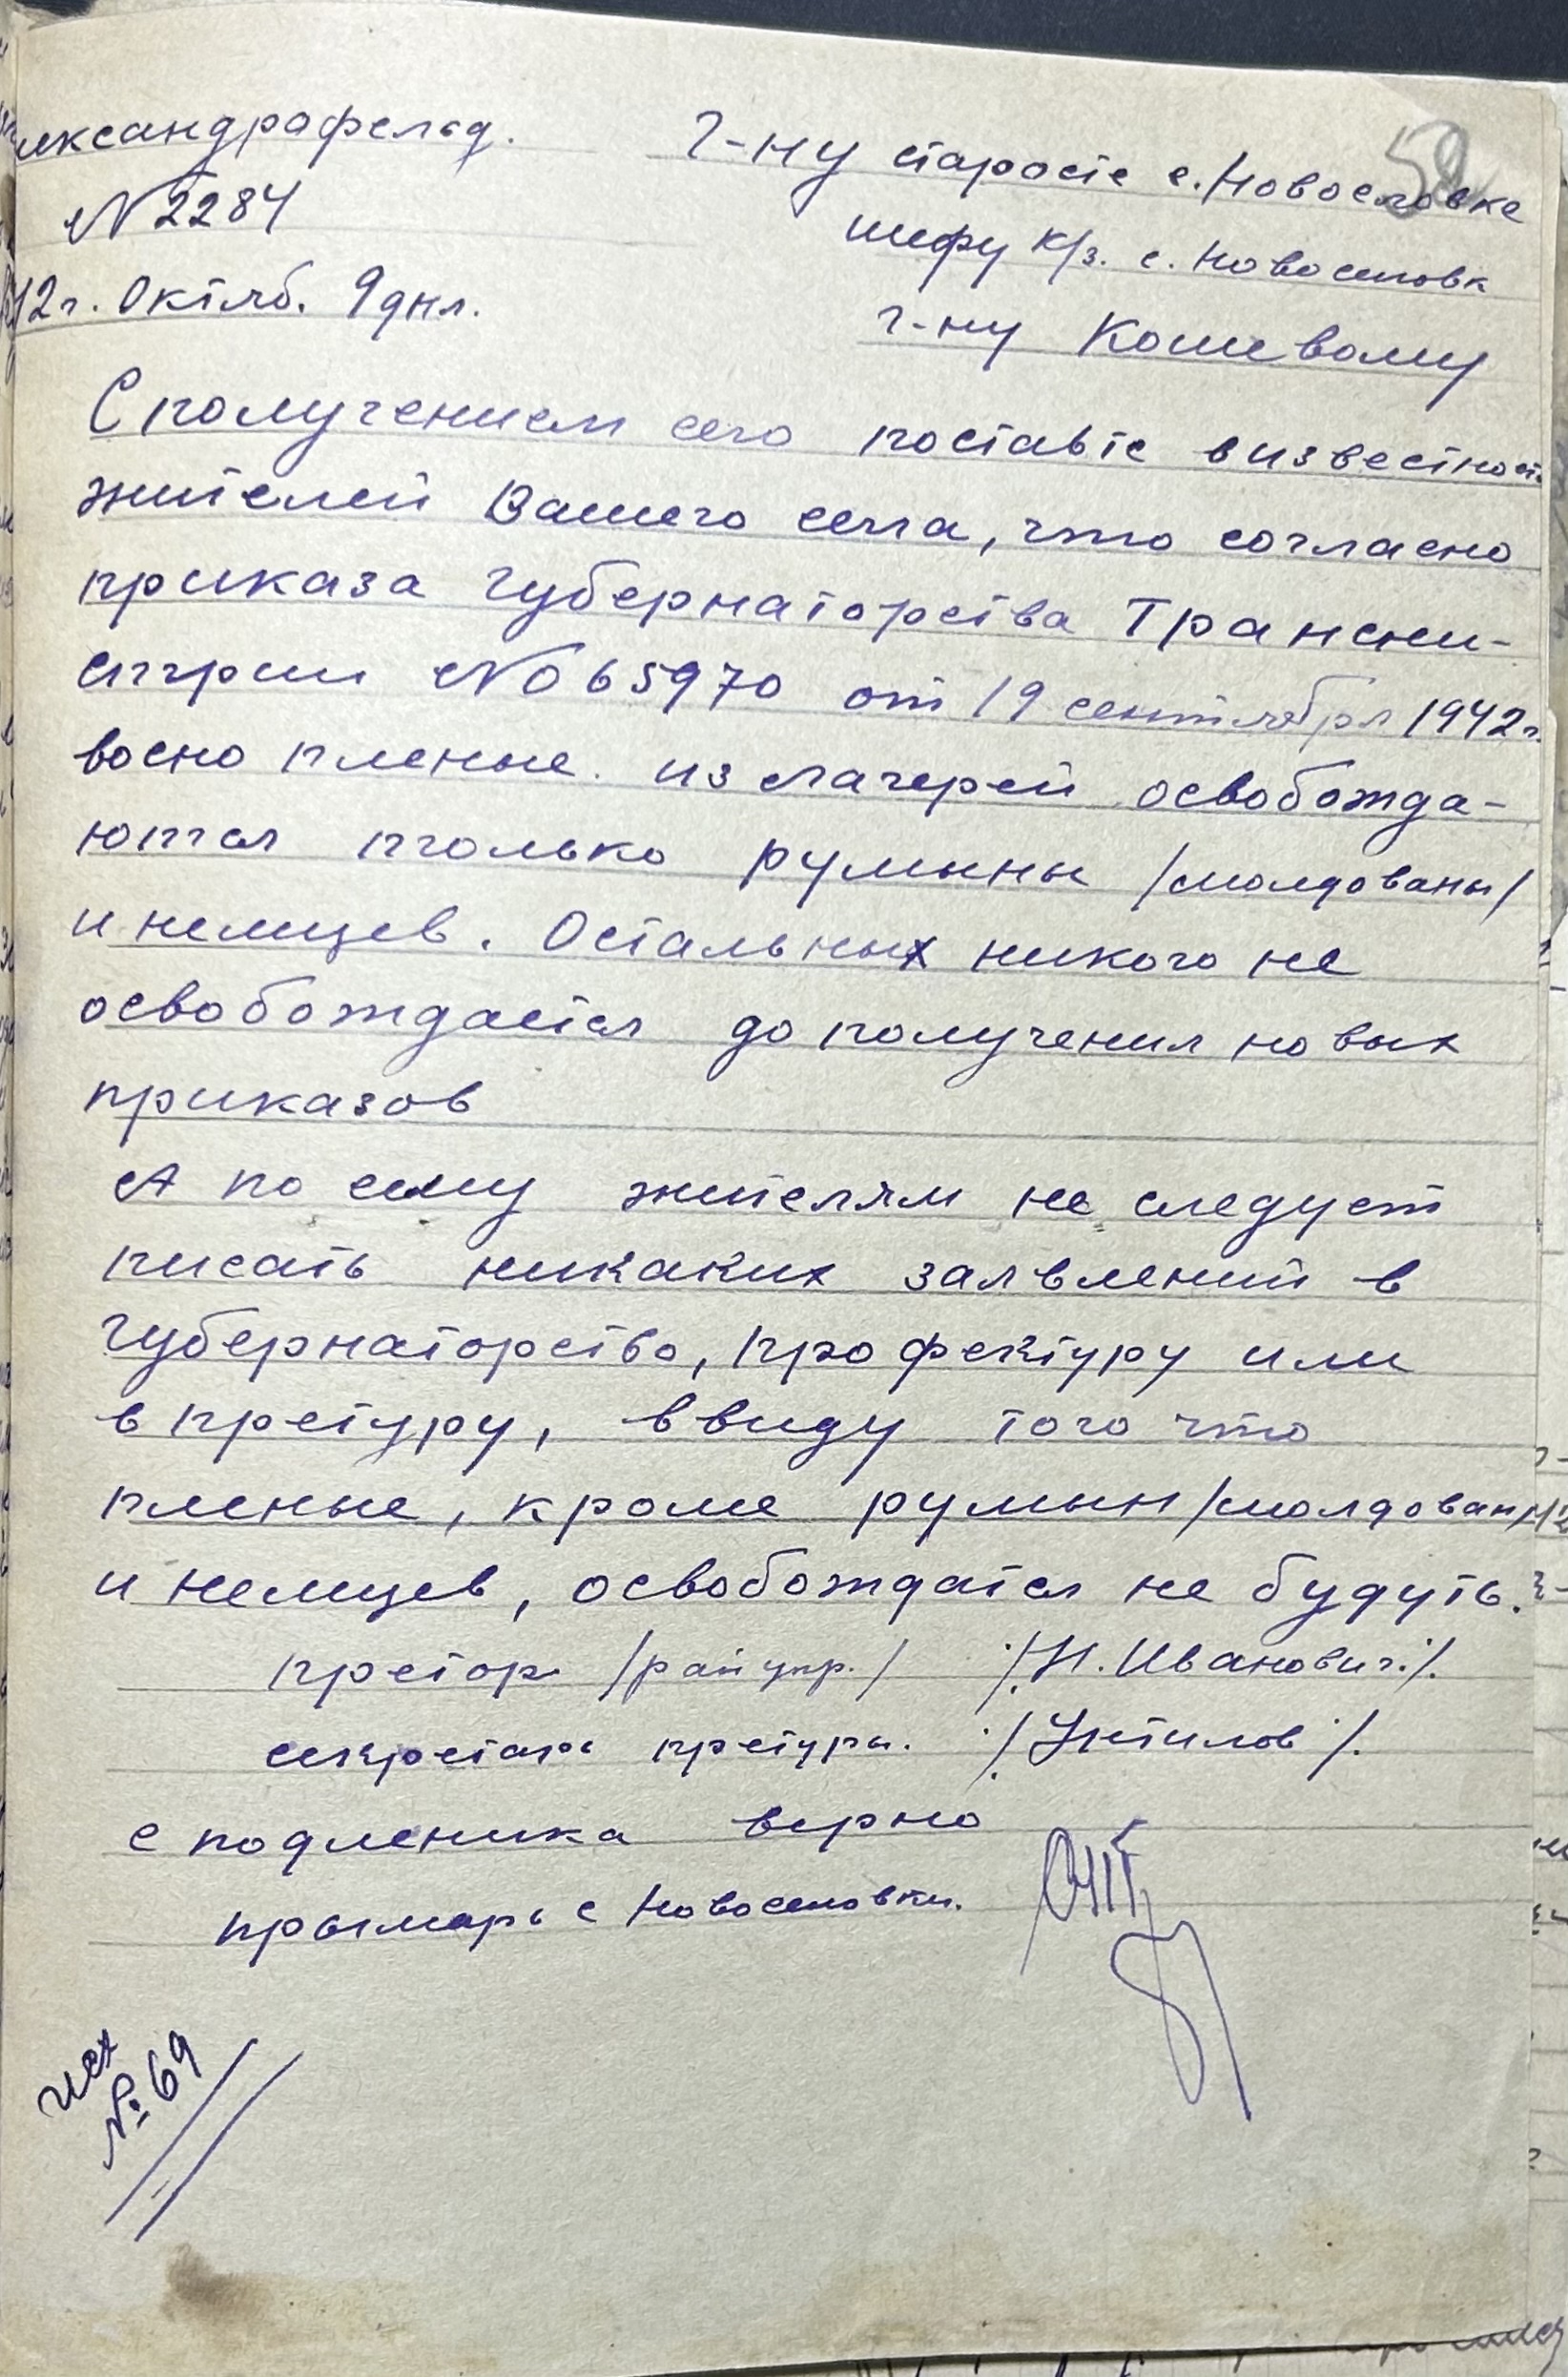 лександрафельд.
N 2284
42 г. Октяб. 9 дня.
52
Г-ну старосте с. Новословке
шефу к/з. с. Новоселовк
г-ну Кошевому
С получением сего поставте в известност
жителей Вашего села, что согласно
приказа Губернаторства Трансни-
стрии N 065970 от 19 сентября 1942 г.
военно пленые. из лагерей освобожда-
ются только румыны /молдованы/
и немцев. Остальных никого не
освобождается до получения новых
приказов
А по сему жителям не следует
писать никаких заявлений в
Губернаторство, профектуру или
в претуру, в виду того что
пленые, кроме румын /молдован/
и немцев, освобождатся не будуть.
претор /рай упр./ /Н. Иванович/.
секретарь претуры.
с подленика верно
прымарь с Новоселовки.
исх
№ 69